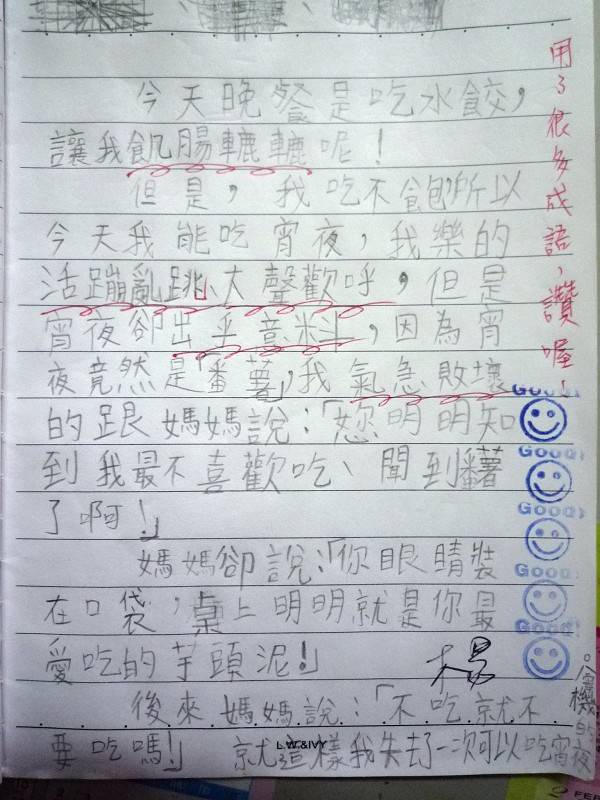 今天晚餐是吃水餃，
讓我飢腸轆轆呢！
但是，我吃不飽所以
今天我能吃宵夜，我樂的
活蹦亂跳、大聲歡呼，但是
宵夜卻出乎意料，因為宵
夜竟然是「番薯」，我氣急敗壞
的跟媽媽說：「您明明知
到我最不喜歡吃、聞到番薯
了啊！」
媽媽卻說：「你眼睛裝
在口袋，桌上明明就是你最
愛吃的芋頭泥！」
後來媽媽說：「不吃就不
要吃嗎！」 就這樣我失去了一次可以吃宵夜
的機會。
用了很多成語，讚喔！
Good!
Good!
Good!
Good!
Good!
楊
L.W.&IVY